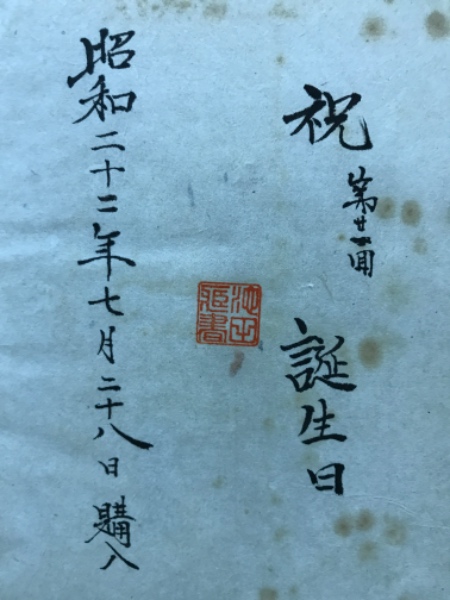 祝 第廿一回 誕生日
池田
蔵書
昭和二十二年七月二十八日 購入